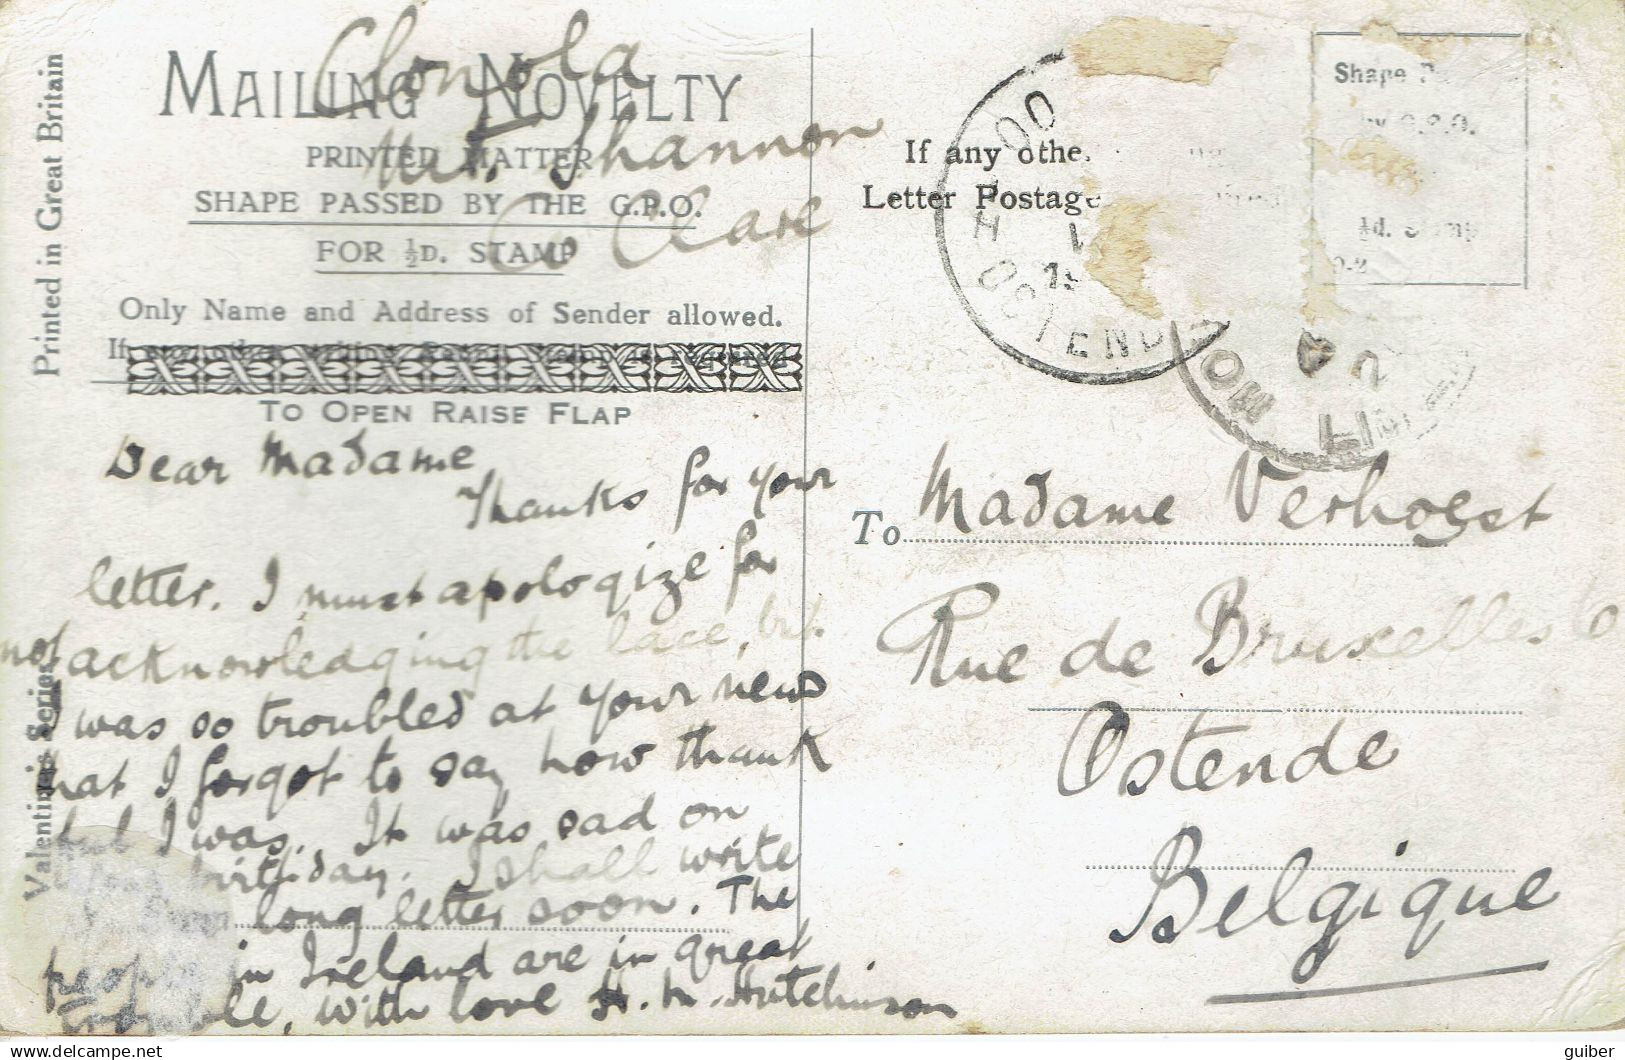 Clonola
Mt. Shannon
Co Clare
MAILING NOVELTY
PRINTED MATTER
SHAPE PASSED BY THE G.P.O.
FOR ½D. STAMP
Only Name and Address of Sender allowed.
If
TO OPEN RAISE FLAP
Printed in Great Britain
Valentine's Series
Dear Madame
Thanks for your
letter. I must apologize for
not acknowledging the lace, but
I was so troubled at your news
that I forgot to say how thank
ful I was. It was sad on
birthday. I shall write
long letter soon. The
people in Ireland are in great
trouble, with love H. M. Hutchinson
If any othe
Letter Postage
Shape
G.P.O.
½d. Stamp
OOSTEND
To Madame Verhoest
Rue de Bruxelles 6
Ostende
Belgique
delcampe.net
guiber